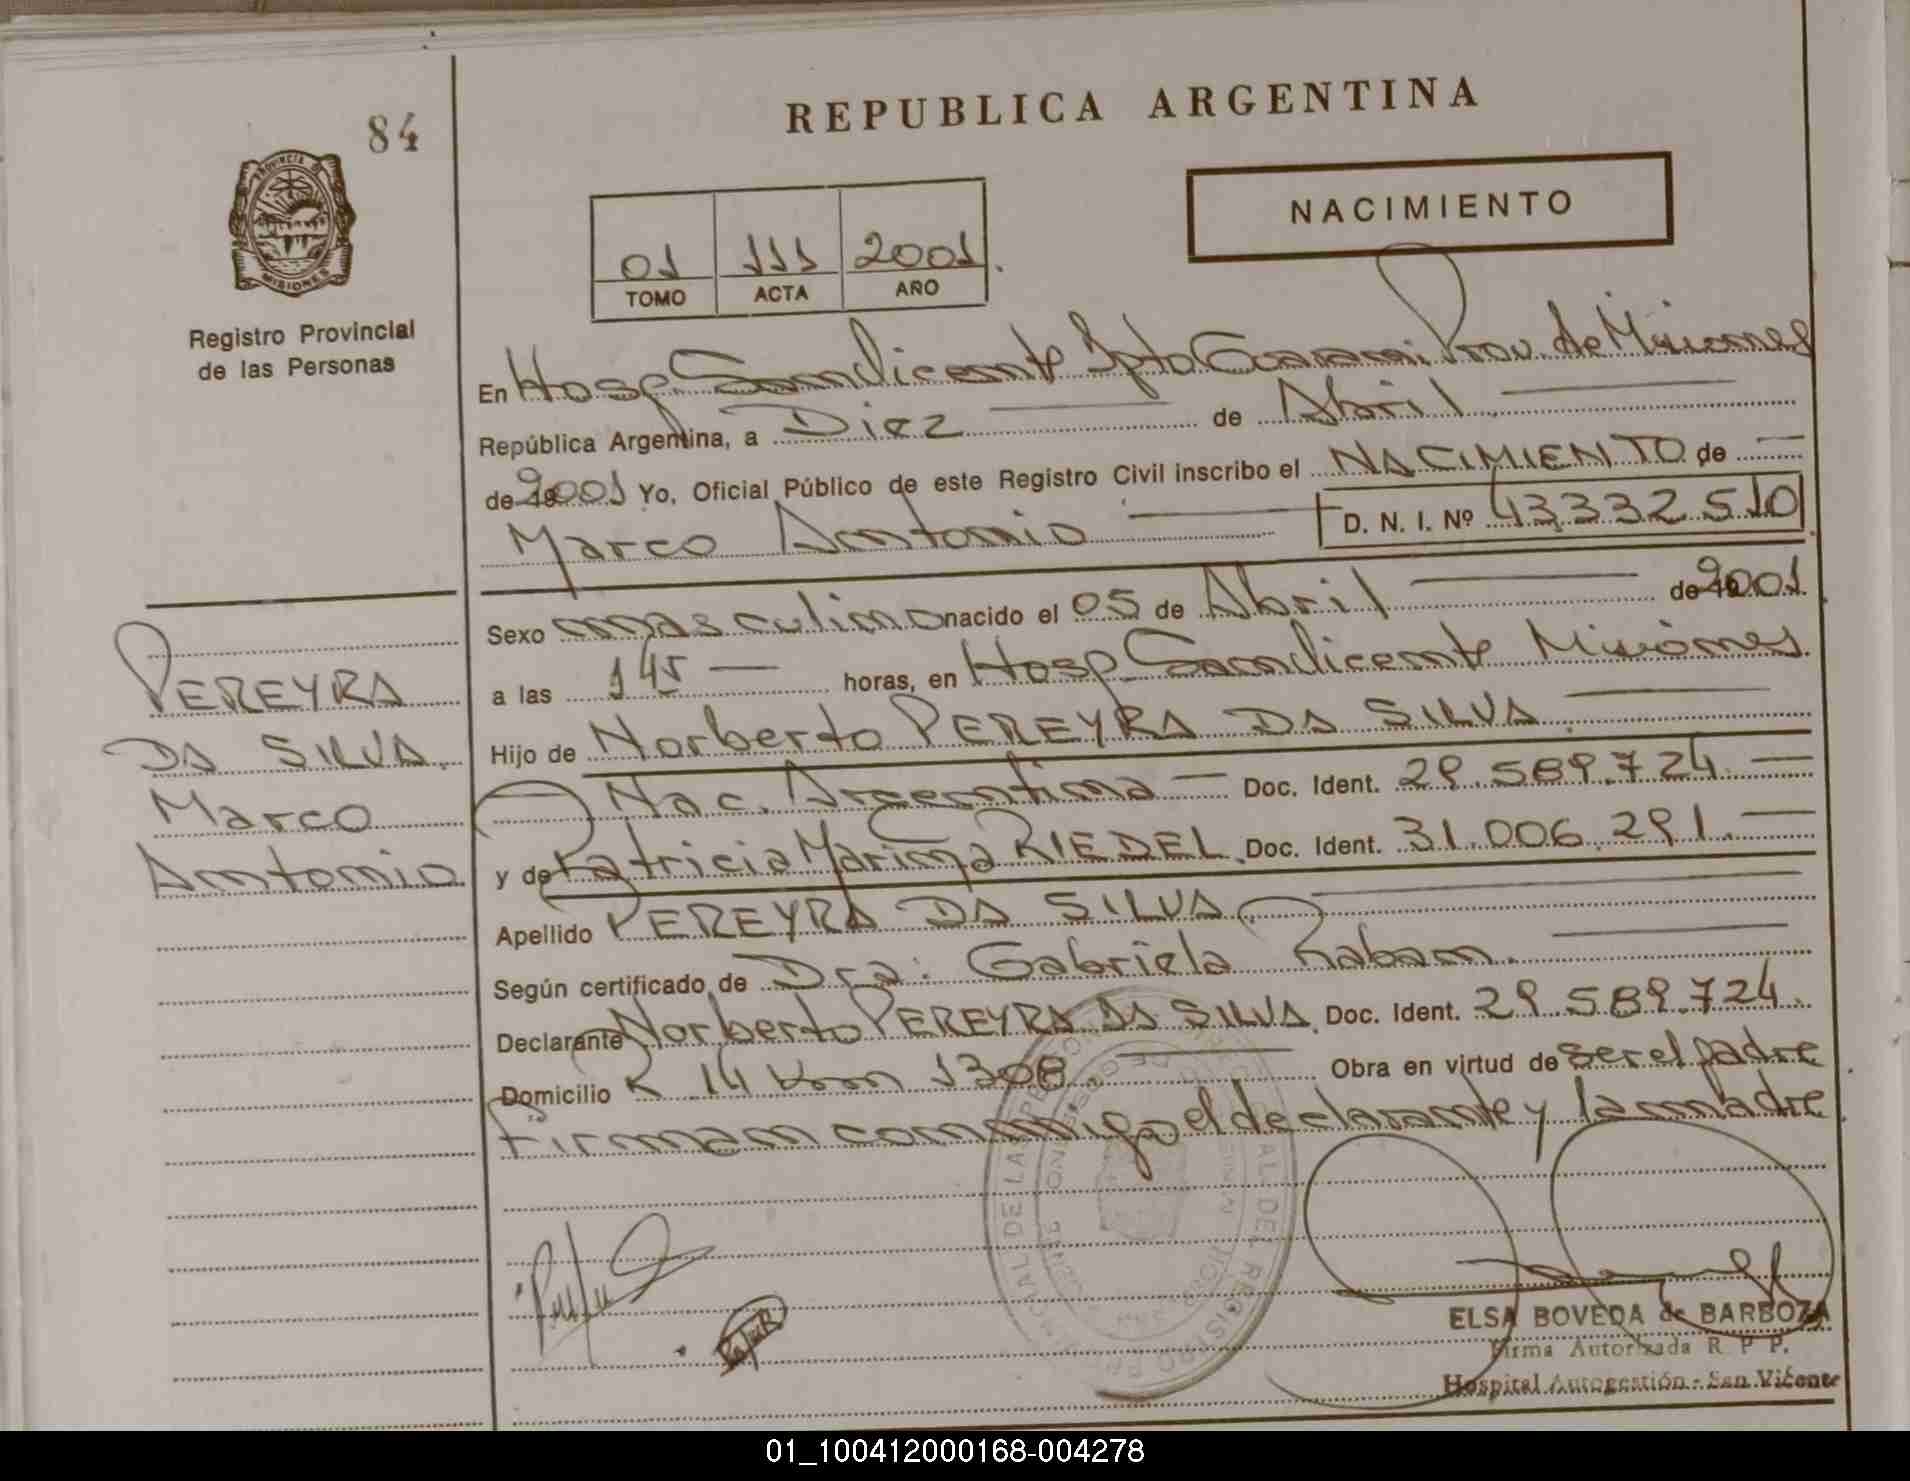 84
REPUBLICA ARGENTINA
PROVINCIA D
MISIONES
Registro Provincial
de las Personas
NACIMIENTO
01 111 2001.
TOMO ACTA AÑO
En Hosp Sanvicente Dpto Guarani Prov. de Misiones
República Argentina, a Diez de Abril
de 2001 Yo, Oficial Público de este Registro Civil inscribo el NACIMIENTO de
Marco Antonio D. N. I. Nº 43332510
Sexo masculino nacido el 05 de Abril de 2001.
a las 145 horas, en Hosp Sanvicente Misiones.
Hijo de Norberto PEREYRA DA SILVA.
Nac. Argentina Doc. Ident. 29.589.724
y de Patricia Marina RIEDEL. Doc. Ident. 31.006.291.
Apellido PEREYRA DA SILVA.
Según certificado de Dra: Gabriela Raban.
Declarante Norberto PEREYRA DA SILVA. Doc. Ident. 29.589.724.
Domicilio R 14 Km 1308. Obra en virtud de ser el padre
Firman conmigo el declarante y la madre.
PEREYRA
DA SILVA.
Marco
Antonio
ELSA BOVEDA de BARBOZA
Firma Autorizada R P P.
Hospital Autogestión - San Vicente
01_100412000168-004278